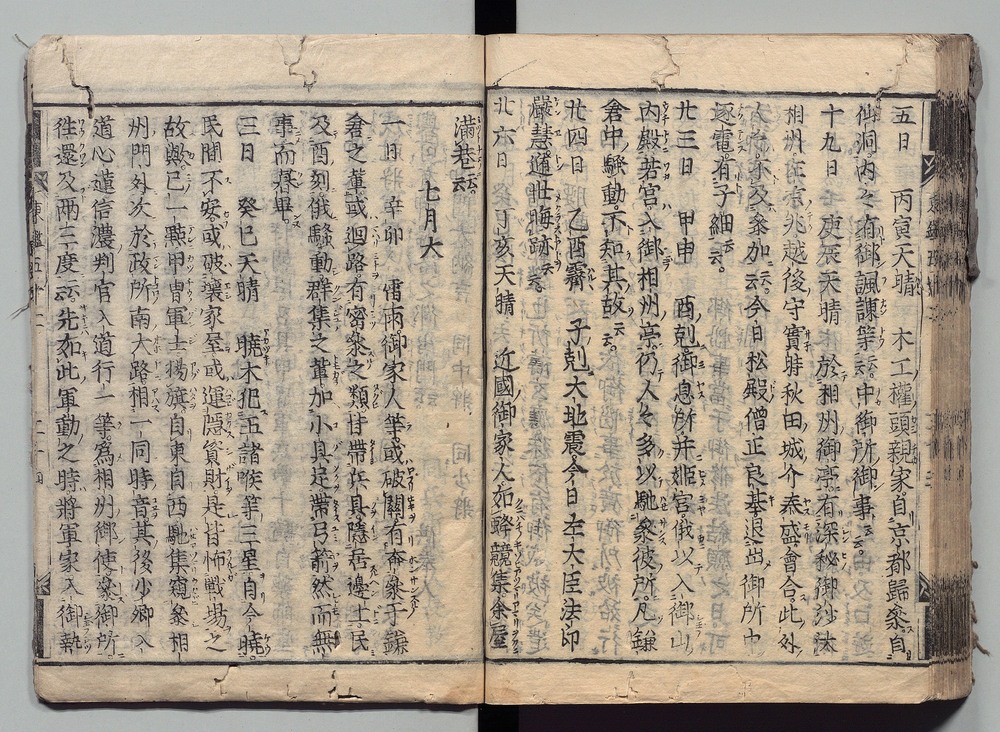 五日　丙寅天晴　木工權頭親家自京都歸參自
仙洞内々有御諷諫等云云。中御所御事云云。
十九日　庚辰天晴　於相州御亭有深秘御沙汰
相州左京兆越後守實時秋田城介泰盛會合。此外
人々不及參加云云今日松殿僧正良基退出御所中
逐電。有子細云云。
廿三日　甲申　酉剋御息所并姬宮俄以入御山
内殿若宮入御相州亭仍人々多以馳參彼所。凡鎌
倉中騷動不知其故云云。
廿四日　乙酉霽　子剋大地震今日左大臣法印
嚴惠遁世晦跡云云
廿六日　丁亥天晴　近國御家人如蜂競集家屋
滿巷云云。
七月大
一日　辛卯　雨御家人等或破關有奔參于鎌
倉之輩或廻路有密參之類甘帶兵具隱居邊土民
及酉刻俄騷動群集之輩加小具足帶弓箭然而無
事而暮畢
三日　癸巳天晴　曉木犯五諸侯第三星自今曉。
民間不安或破壞家屋或運隱資財是皆怖戰場之
故歟巳一點甲冑軍士揚旗自東自西馳集窺參相
州門外次於政所南大路相一同時音其後少卿入
道心蓮信濃判官入道行一等爲相州御使參御所
往還及兩三度云云先如此軍動之時將軍家入御執
東鑑五十二　二十四